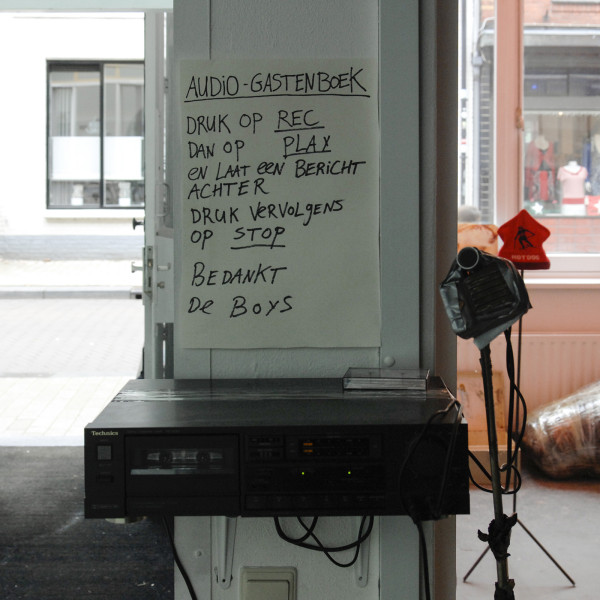 AUDIO-GASTENBOEK
DRUK OP REC
DAN OP PLAY
EN LAAT EEN BERICHT
ACHTER
DRUK VERVOLGENS
OP STOP
BEDANKT
DE BOYS
Technics